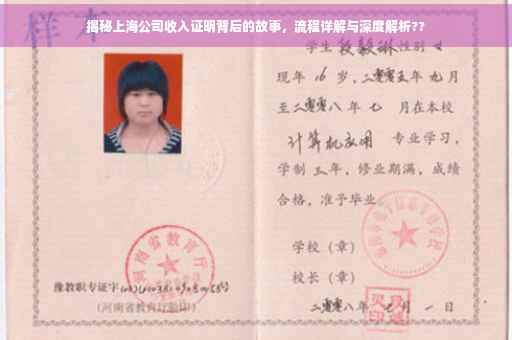 揭秘上海公司收入证明背后的故事，流程详解与深度解析??
样本
学生 段毅琳 性别 女
现年 16 岁，二零零五年 九月
至二零零八年 七 月在本校
计算机应用 专业学习，
学制 三 年，修业期满，成绩
合格，准予毕业
学校（章）
校长（章）
河南省教育厅
豫教职专证字
(河南省教育厅验印)
二零零八年 七 月 一 日